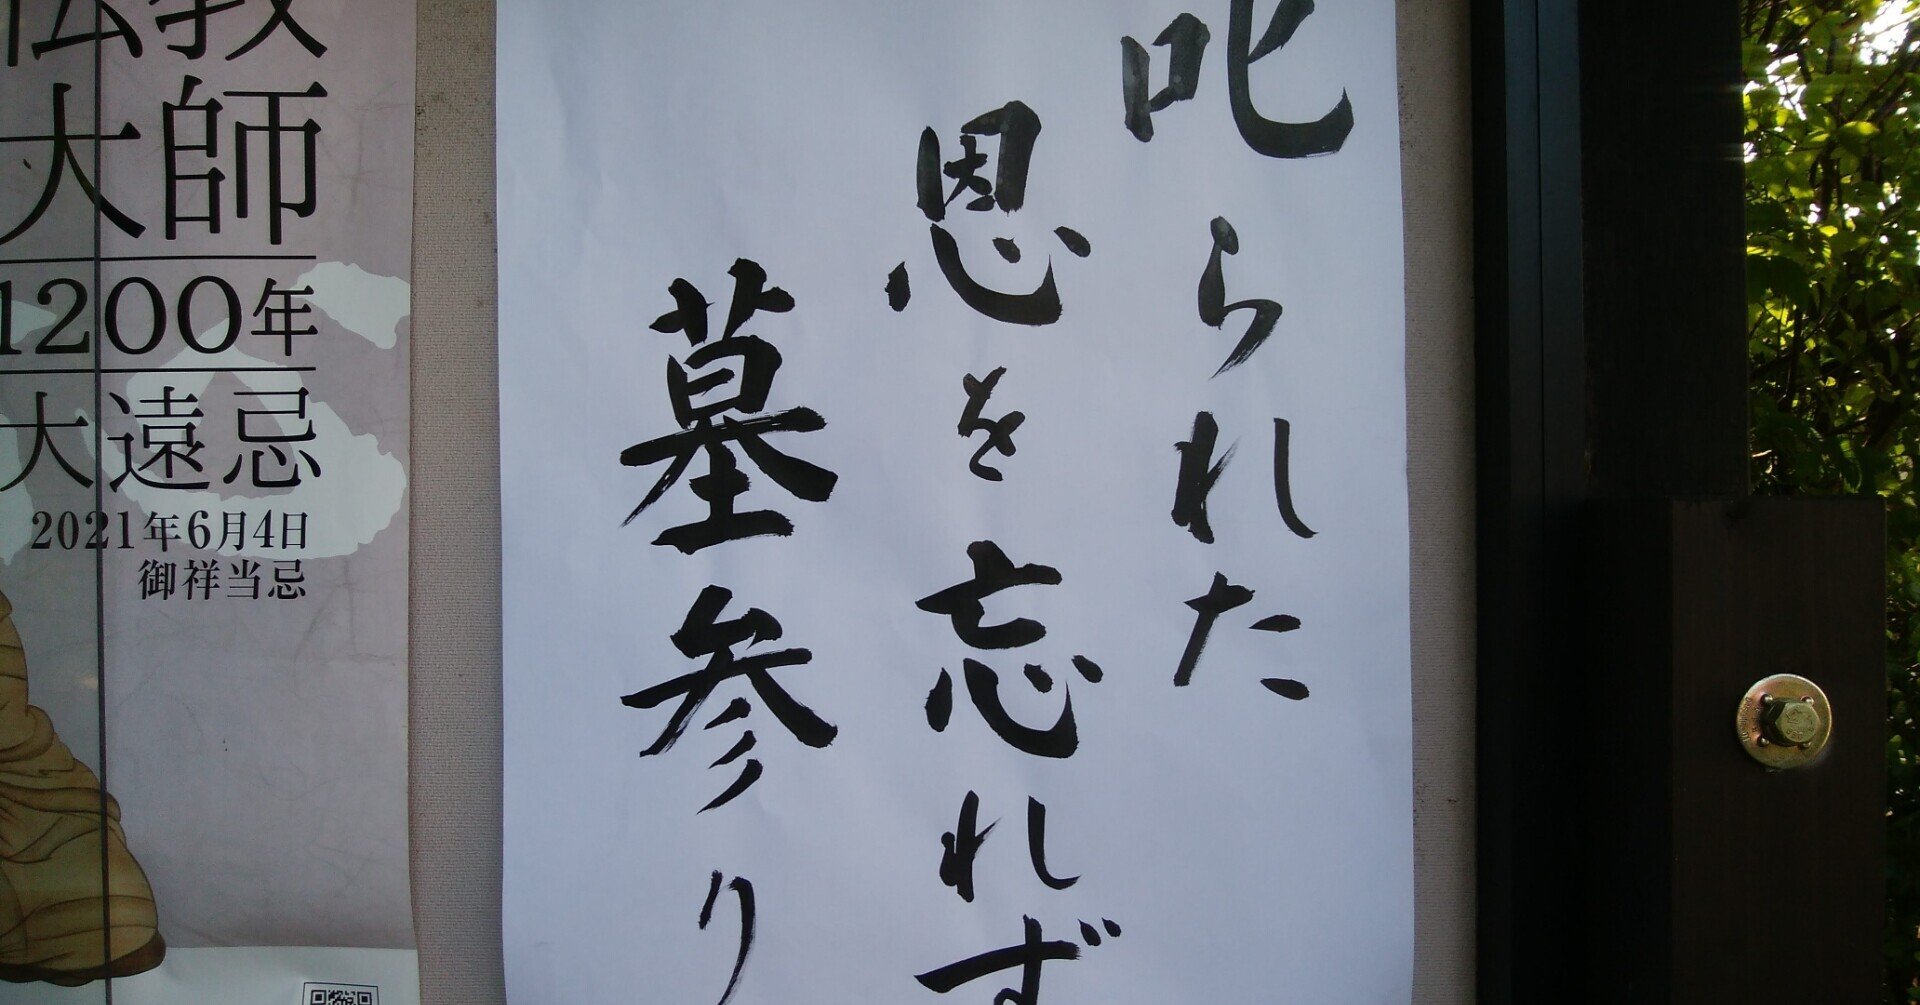 叱られた
恩を忘れず
墓参り
伝教
大師
1200年
大遠忌
2021年6月4日
御祥当忌